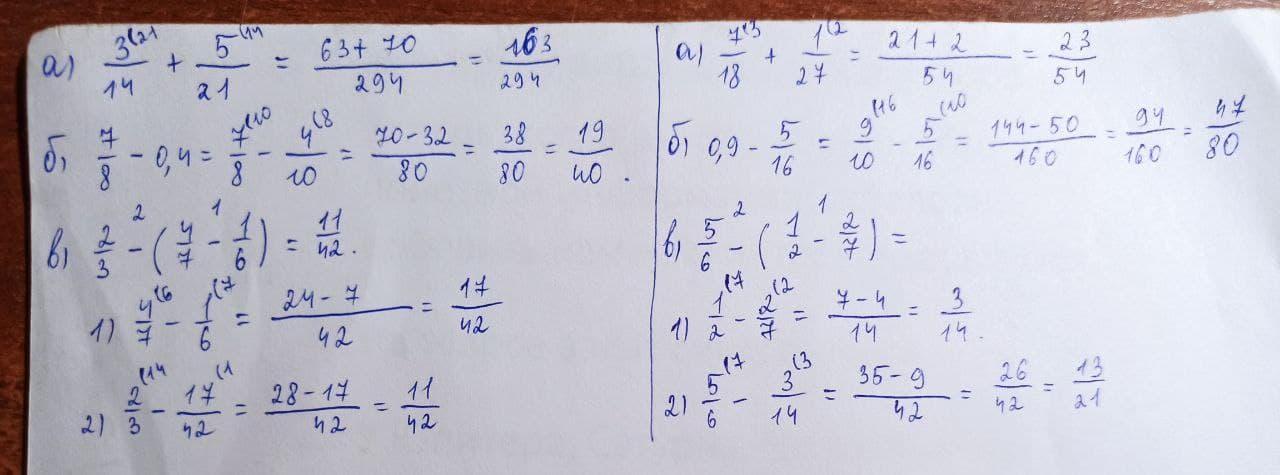 а) 3(21/14 + 5(14/21 = 63+70/294 = 163/294
б) 7/8 - 0,4 = 7(10/8 - 4(8/10 = 70-32/80 = 38/80 = 19/40.
в) 2/3 -² (4/7 -¹ 1/6) = 11/42.
1) 4(6/7 - 1(7/6 = 24-7/42 = 17/42
2) 2(14/3 - 17(1/42 = 28-17/42 = 11/42
а) 7(3/18 + 1(2/27 = 21+2/54 = 23/54
б) 0,9 - 5/16 = 9(16/10 - 5(10/16 = 144-50/160 = 94/160 = 47/80
в) 5/6 -² (1/2 -¹ 2/7) =
1) 1(7/2 - 2(2/7 = 7-4/14 = 3/14.
2) 5(7/6 - 3(3/14 = 35-9/42 = 26/42 = 13/21